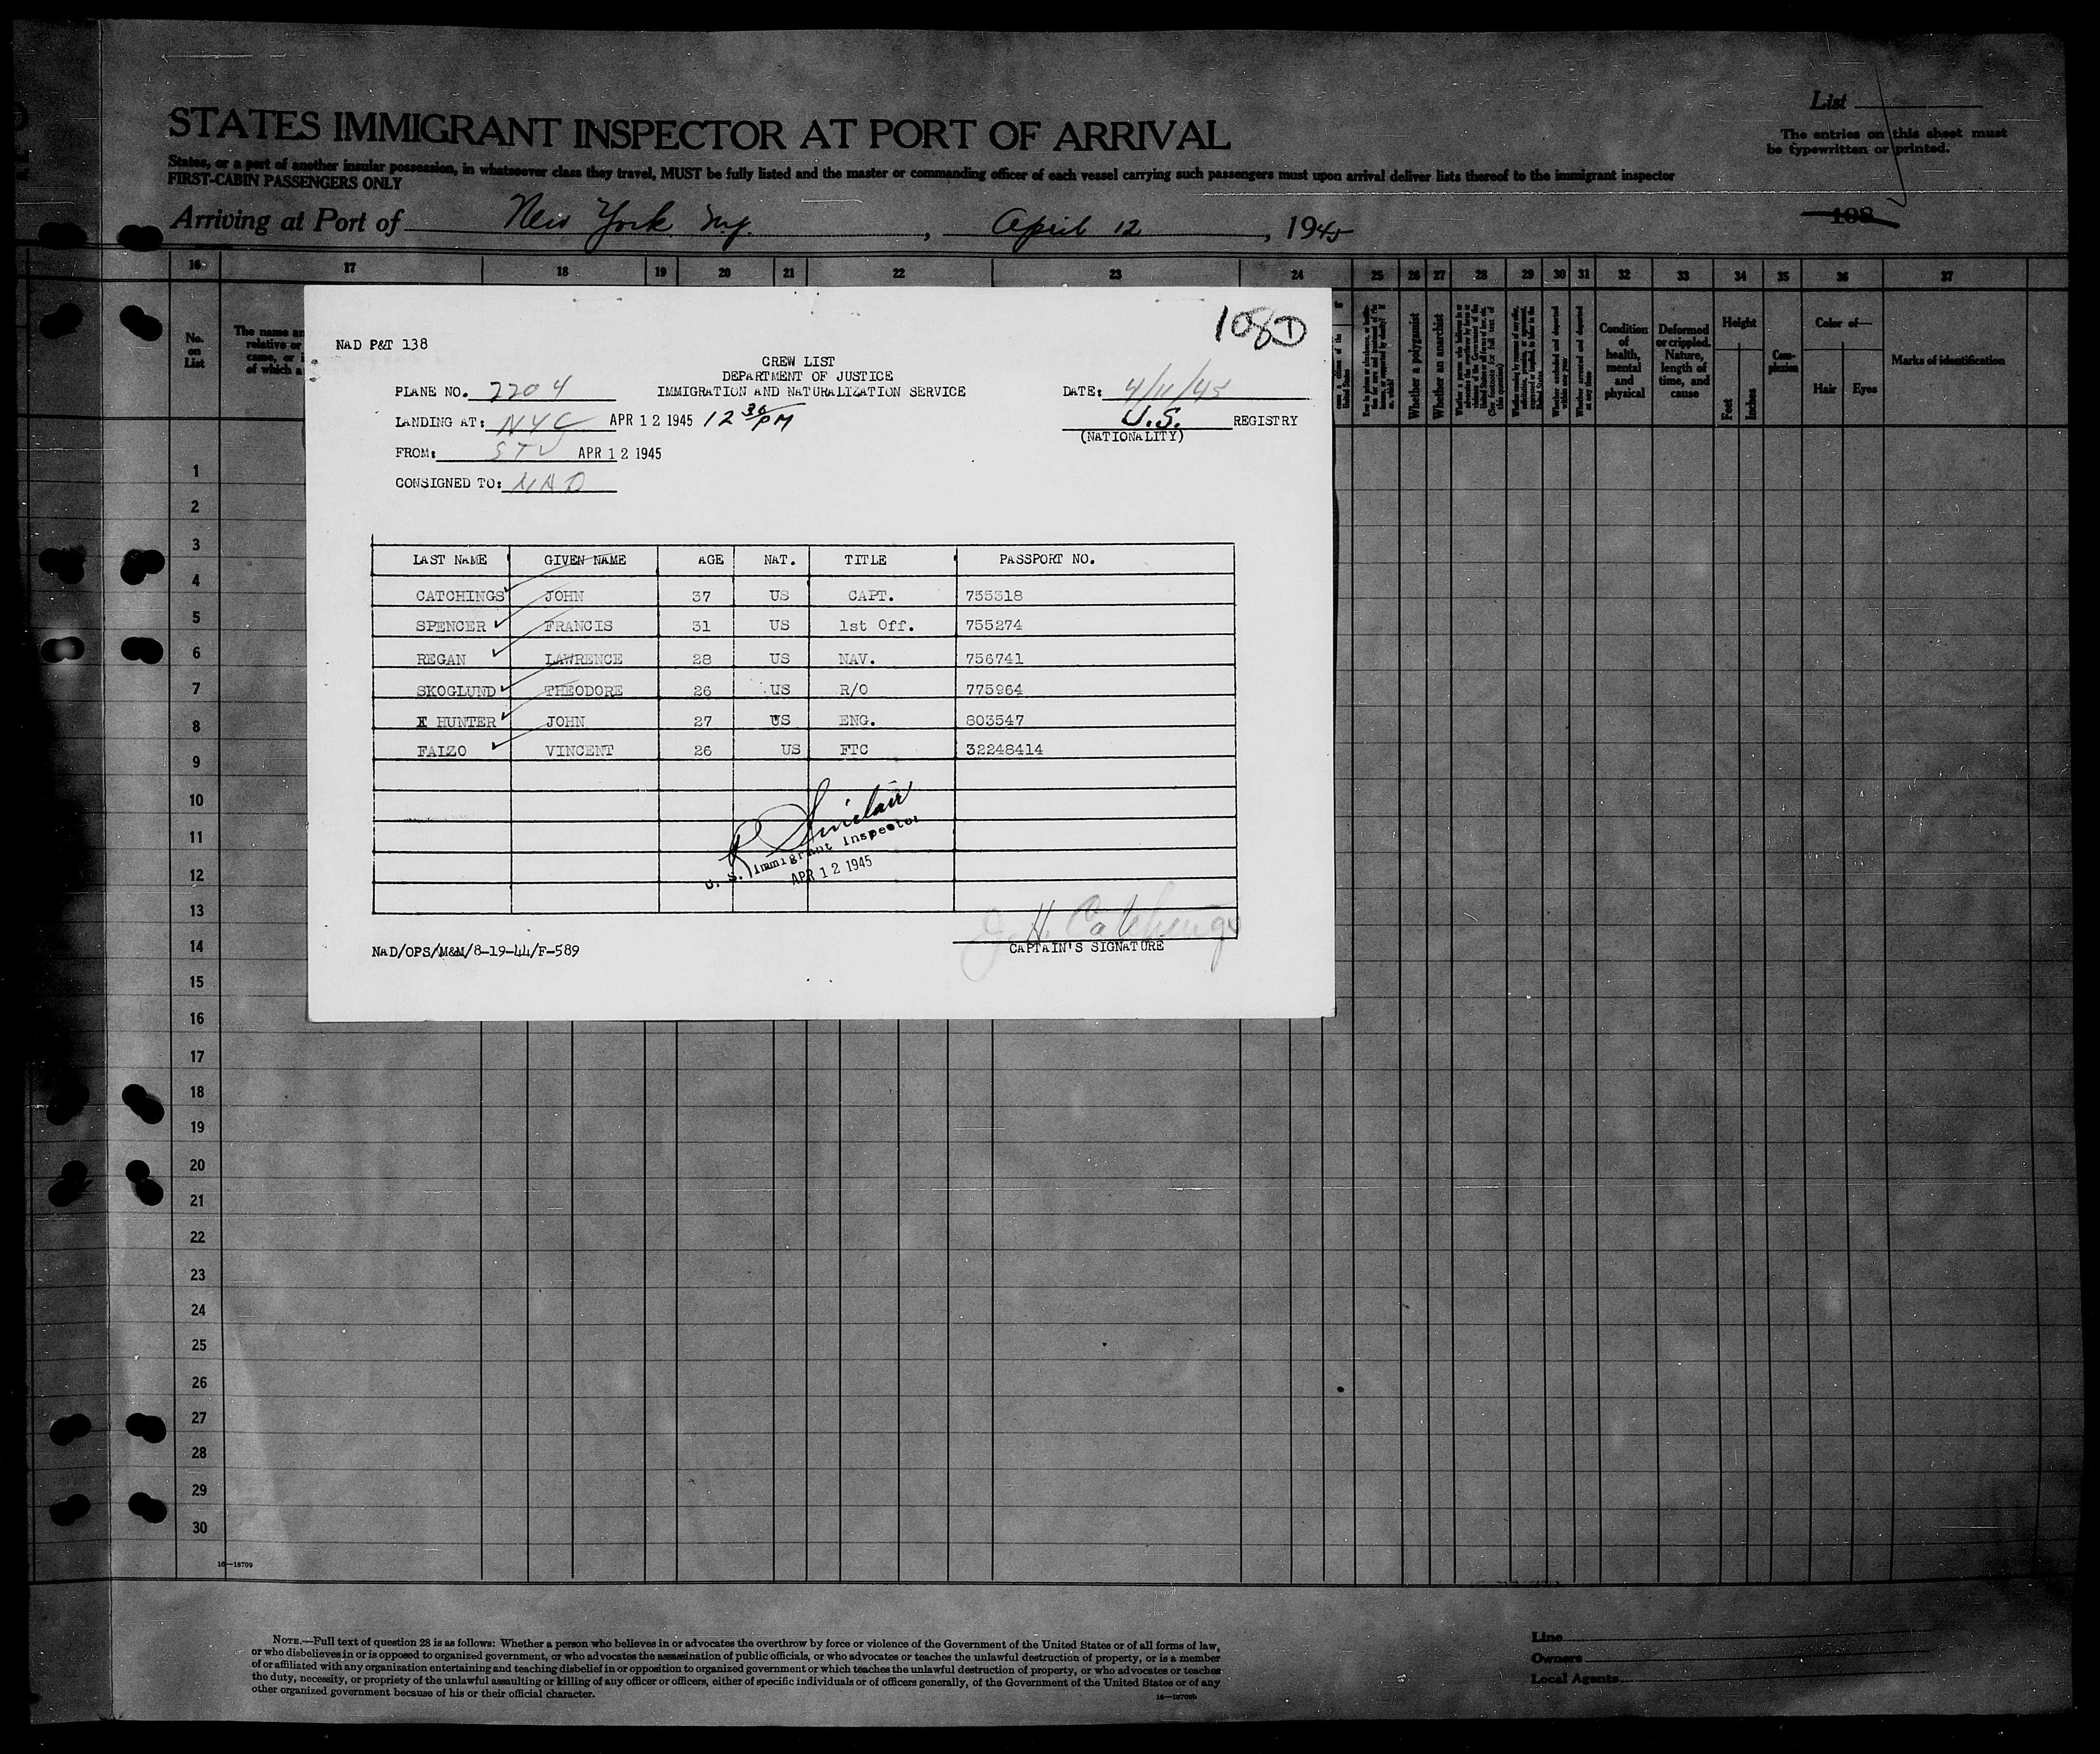 List
STATES IMMIGRANT INSPECTOR AT PORT OF ARRIVAL
The entries on this sheet must
be typewritten or printed.
States, or a port of another insular possession, in whatsoever class they travel, MUST be fully listed and the master or commanding officer of each vessel carrying such passengers must upon arrival deliver lists thereof to the immigrant inspector
FIRST-CABIN PASSENGERS ONLY
Arriving at Port of New York NY. , April 12 , 1945
108
16 17 18 19 20 21 22 23 24 25 26 27 28 29 30 31 32 33 34 35 36 37
No.
on
List
The name an
relative or
came, or i
of which a
Whether a polygamist
Whether an anarchist
Condition
of
health,
mental
and
physical
Deformed
or crippled.
Nature,
length of
time, and
cause
Height
Feet
Inches
Com-
plexion
Color of—
Hair Eyes
Marks of identification
108 D
NAD P&T 138
CREW LIST
DEPARTMENT OF JUSTICE
IMMIGRATION AND NATURALIZATION SERVICE
PLANE NO. 2204
DATE: 4/11/45
LANDING AT: NYC APR 12 1945 12 30/PM
U.S. REGISTRY
(NATIONALITY)
FROM: STV APR 12 1945
CONSIGNED TO: NAD
LAST NAME GIVEN NAME AGE NAT. TITLE PASSPORT NO.
CATCHINGS JOHN 37 US CAPT. 755318
SPENCER FRANCIS 31 US 1st Off. 755274
REGAN LAWRENCE 28 US NAV. 756741
SKOGLUND THEODORE 26 US R/O 775964
X HUNTER JOHN 27 US ENG. 803547
FAIZO VINCENT 26 US FTC 32248414
R Sinclair
U. S. Immigrant Inspector
APR 12 1945
J. H. Catchings
CAPTAIN'S SIGNATURE
NAD/OPS/M&M/8-19-44/F-589
1
2
3
4
5
6
7
8
9
10
11
12
13
14
15
16
17
18
19
20
21
22
23
24
25
26
27
28
29
30
16—18709
NOTE.—Full text of question 28 is as follows: Whether a person who believes in or advocates the overthrow by force or violence of the Government of the United States or of all forms of law,
or who disbelieves in or is opposed to organized government, or who advocates the assassination of public officials, or who advocates or teaches the unlawful destruction of property, or is a member
of or affiliated with any organization entertaining and teaching disbelief in or opposition to organized government or which teaches the unlawful destruction of property, or who advocates or teaches
the duty, necessity, or propriety of the unlawful assaulting or killing of any officer or officers, either of specific individuals or of officers generally, of the Government of the United States or of any
other organized government because of his or their official character.
16—18709b
Line
Owners
Local Agents